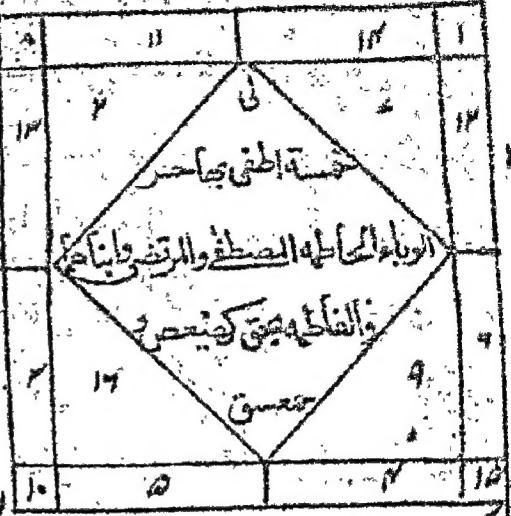 ۸ ۱۱ ۱۴ ۱
۱۳ ۲ ۱۲
لی
خمسة اطفی بها حر
الوباء الحاطمه المصطفی والمرتضی وابناهما
والفاطمه بحق کهیعص و
حمعسق
۳ ۱۶ ۹ ۶
۱۰ ۵ ۴ ۱۵